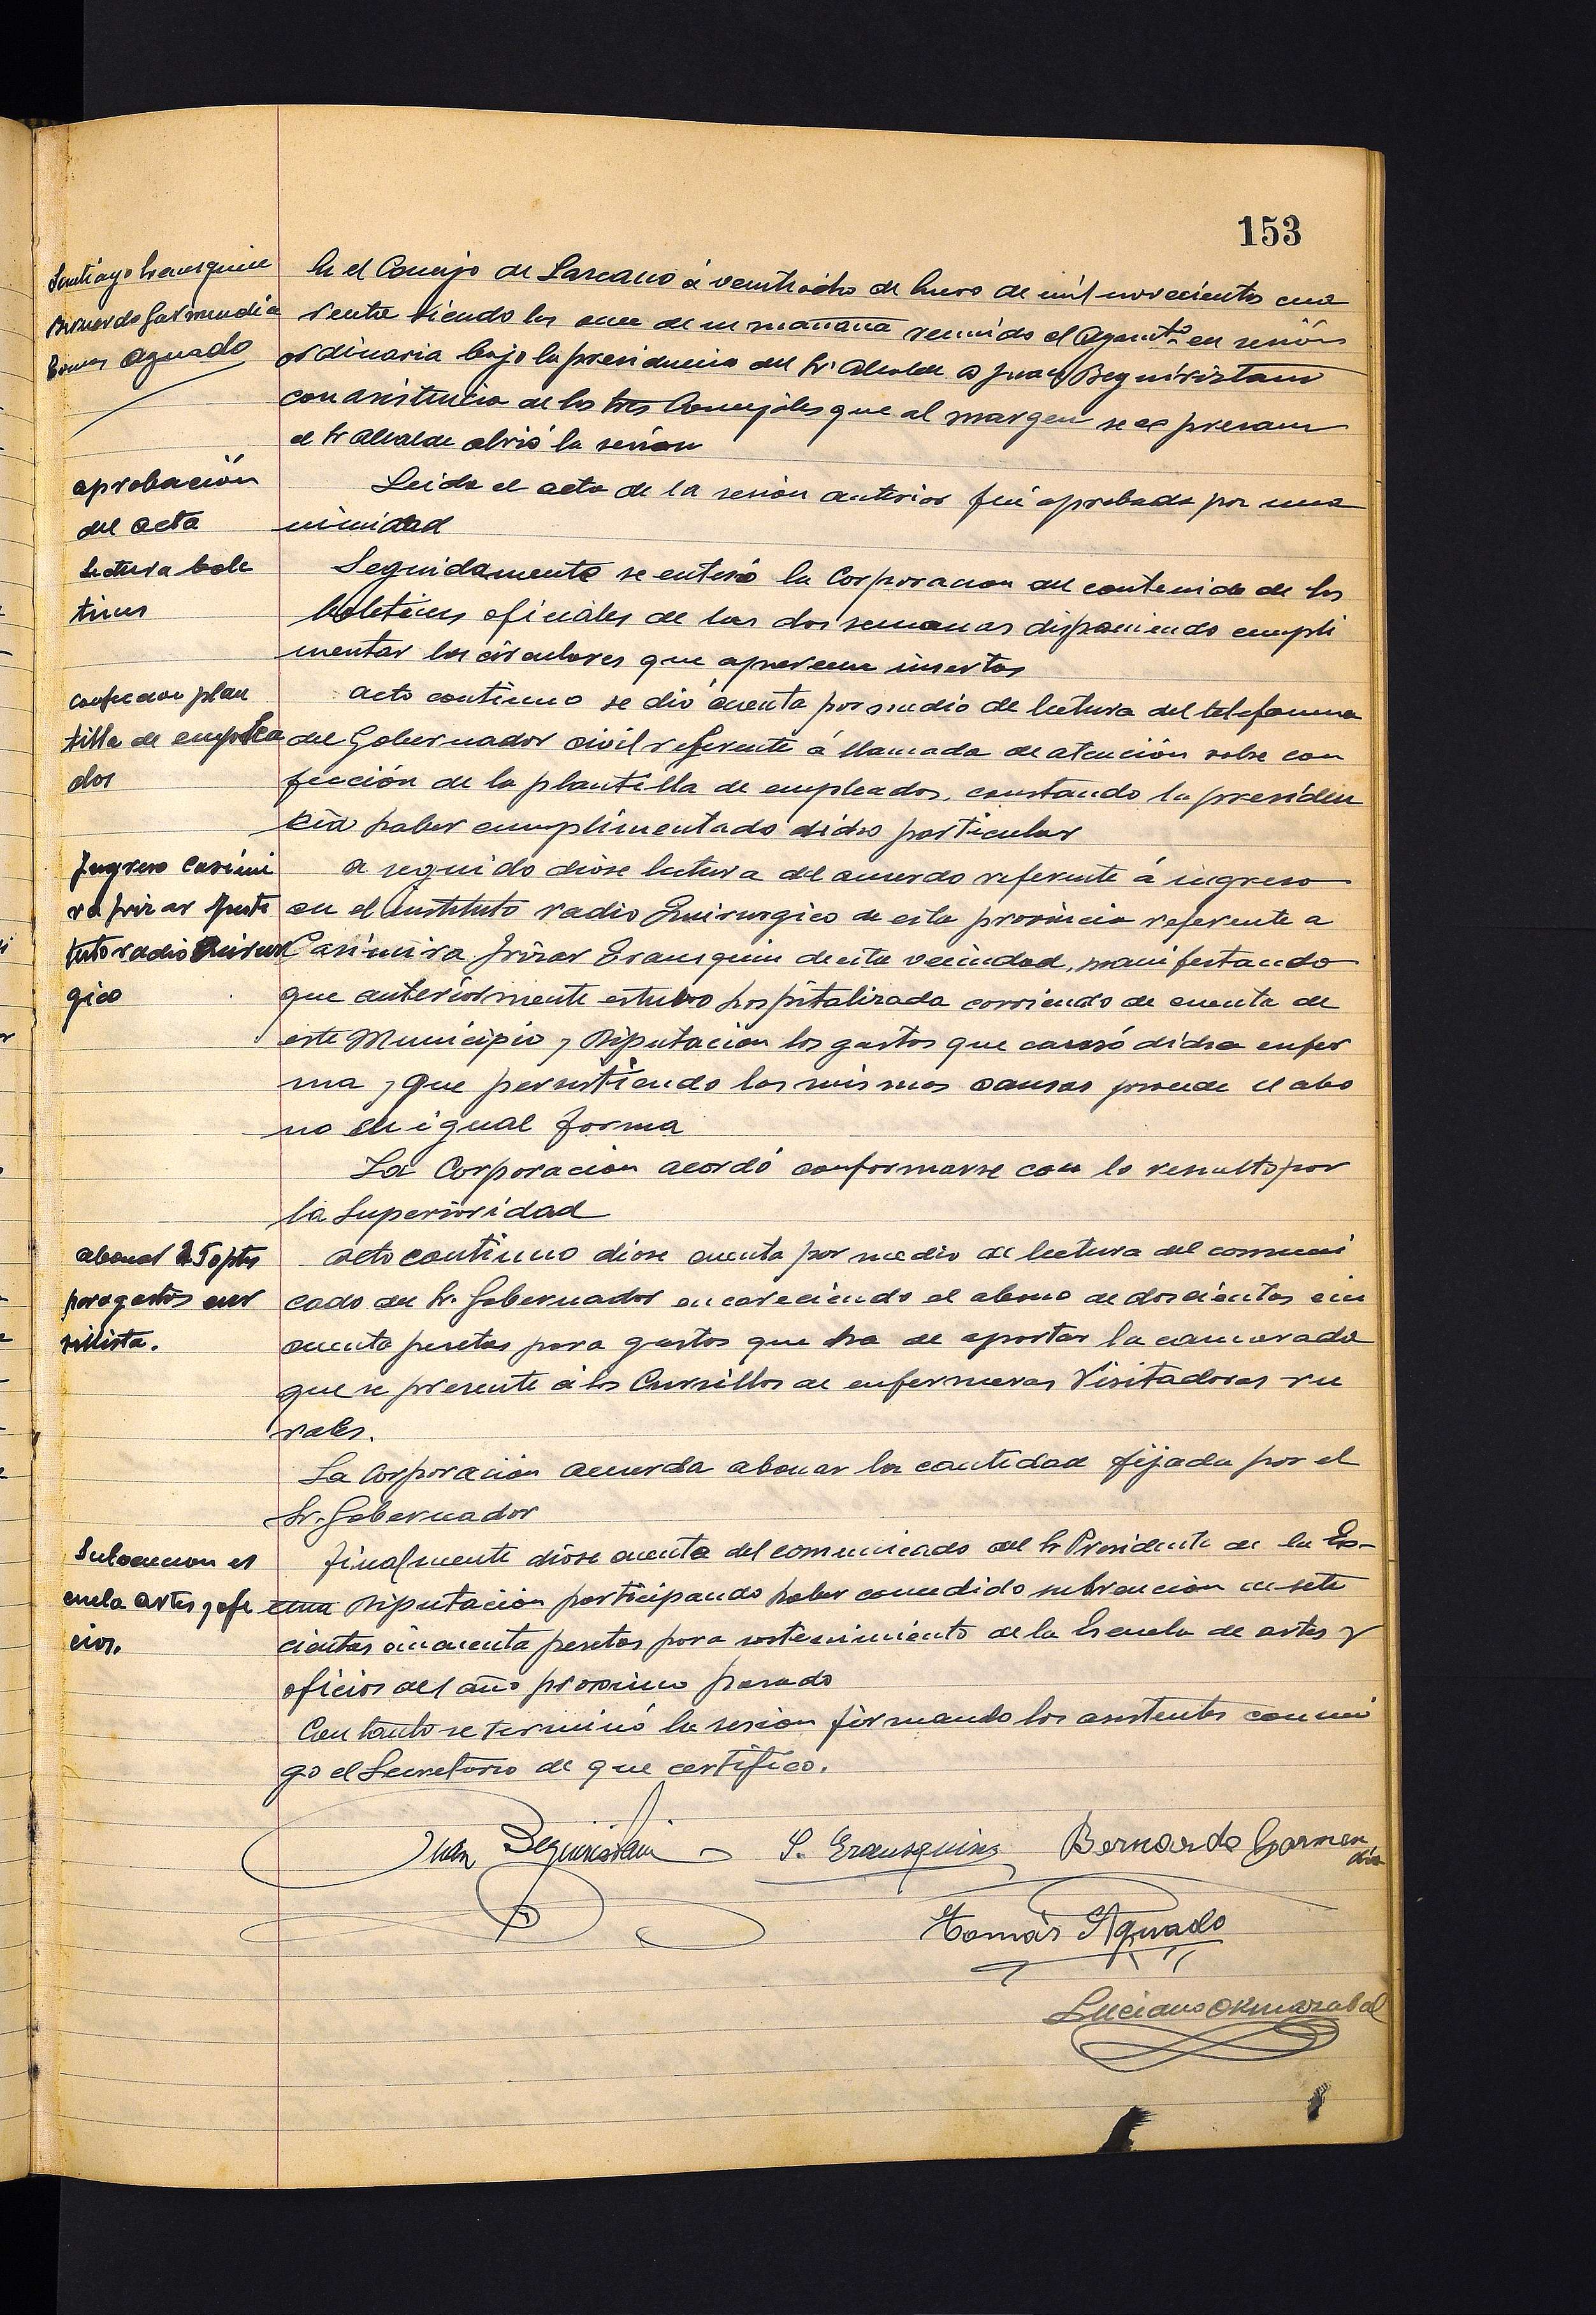 153
Santiago Erausquin
Bernardo Garmendia
Tomas Aguado
En el Concejo de Lazcano á veintiocho de Enero de mil novecientos cua
renta siendo las once de su mañana reunido el Ayuntº en sesión
ordinaria bajo la presidencia del Sr. Alcalde D Juan Beguiristain
con asistencia de los tres Concejales que al margen se expresan
el Sr Alcalde abrió la sesion
aprobación
del acta
Leida el acta de la sesion anterior fué aprobada por una
nimidad
Lectura bole
tines
Seguidamente se enteró la Corporacion del contenido de los
boletines oficiales de las dos semanas disponiendo cumpli
mentar las circulares que aparecen insertas
confeccion plan
tilla de emplea
dos
acto continuo se dió cuenta por medio de lectura del telefonema
del Gobernador civil referente á llamada de atención sobre con
fección de la plantilla de empleados, constando la presiden
cia haber cumplimentado dicho particular
Ingreso Casimi
ra Irizar Insti
tuto radio Quirur
gico
a seguido dióse lectura del acuerdo referente á ingreso
en el Instituto radio Quirurgico de esta provincia referente a
Casimira Irizar Erausquin de esta vecindad, manifestando
que anteriormente estubo hospitalizada corriendo de cuenta de
este Municipio y Diputacion los gastos que causó dicha enfer
ma y que persistiendo las mismas causas procede el abo
no en igual forma
La Corporacion acordó conformarse con lo resuelto por
la Superioridad
abonar 250 ptas
para gastos cur
sillista.
acto continuo dióse cuenta por medio de lectura del comuni
cado del Sr. Gobernador encareciendo el abono de doscientas cin
cuenta pesetas para gastos que ha de aportar la camarada
que se presente á los Cursillos de enfermeras Visitadoras ru
rales.
La Corporación acuerda abonar la cantidad fijada por el
Sr. Gobernador
Subvencion es
cuela artes y ofi
cios.
finalmente dióse cuenta del comunicado del Sr Presidente de la Ex-
cma Diputación participando haber concedido subvencion de sete
cientas cincuenta pesetas para sostenimiento de la Escuela de artes y
oficios del año proximo pasado
Con tanto se terminó la sesion firmando los asistentes conmi
go el Secretario de que certifico.
Juan Beguiristain S. Erausquin Bernardo Garmen
dia
Tomás Aguado
Luciano Okmazabal